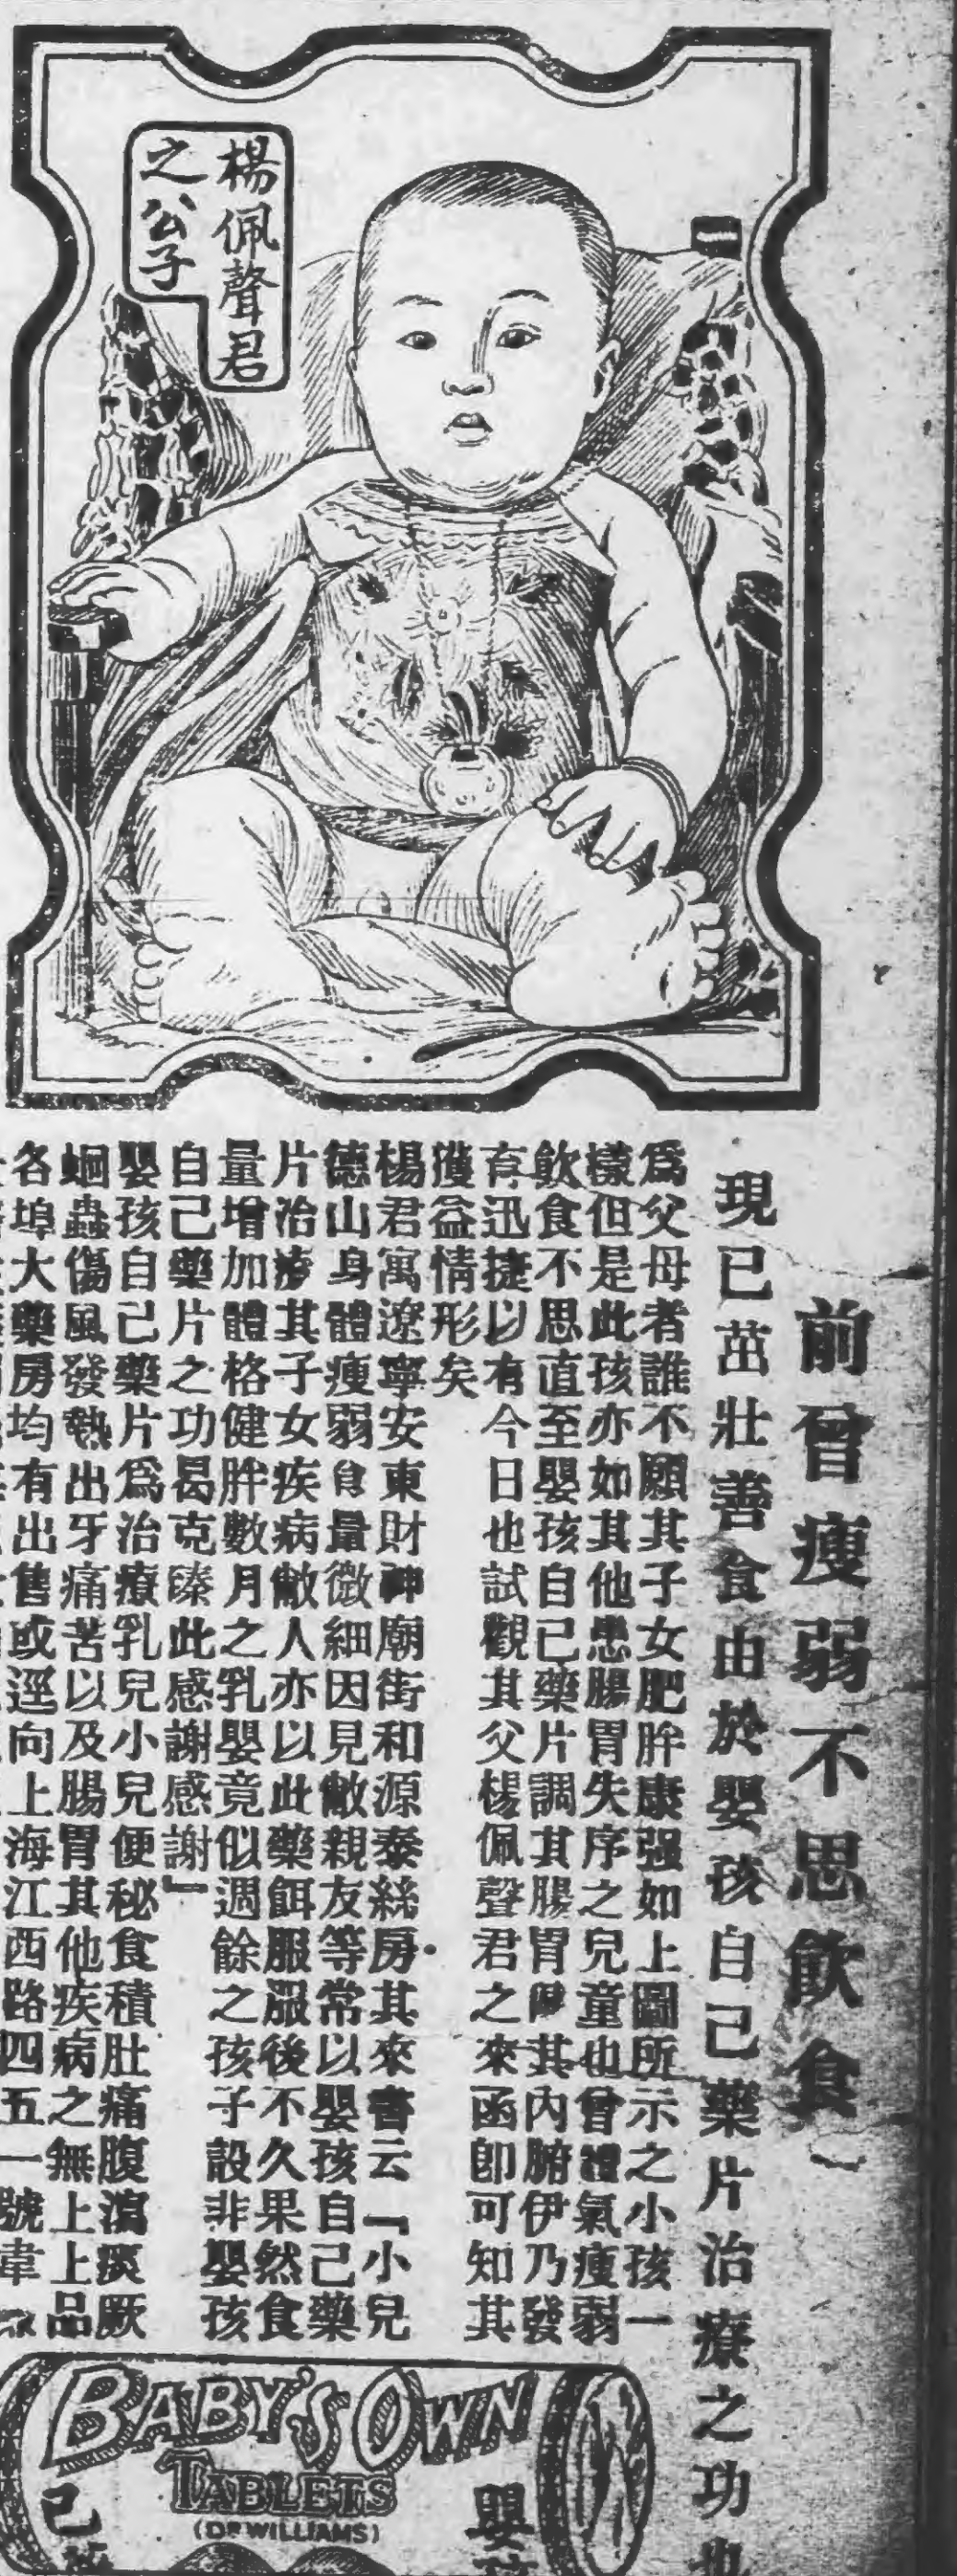 楊佩聲君
之公子
前曾瘦弱不思飲食
現已茁壯善食由於嬰孩自己藥片治療之功也
爲父母者誰不願其子女肥胖康强如上圖所示之小孩一
樣但是此孩亦如其他患腸胃失序之兒童也曾體氣瘦弱
飲食不思直至嬰孩自己藥片調其腸胃 其內腑伊乃發
育迅捷以有今日也試觀其父楊佩聲君之來函卽可知其
獲益情形矣
楊君寓遼寧安東財神廟街和源泰絲房其來書云「小兒
德山身體瘦弱食量微細因見敝親友等常以嬰孩自己藥
片治療其子女疾病敝人亦以此藥餌服服後不久果然食
量增加體格健胖數月之乳嬰竟似週餘之孩子設非嬰孩
自己藥片之功曷克臻此感謝感謝」
嬰孩自己藥片爲治療乳兒小兒便秘食積肚痛腹瀉痰厥
蛔蟲傷風發熱出牙痛苦以及腸胃其他疾病之無上上品
各埠大藥房均有出售或逕向上海江西路四五一號韋
BABY'S OWN
TABLETS
(DR WILLIAMS)
嬰
己